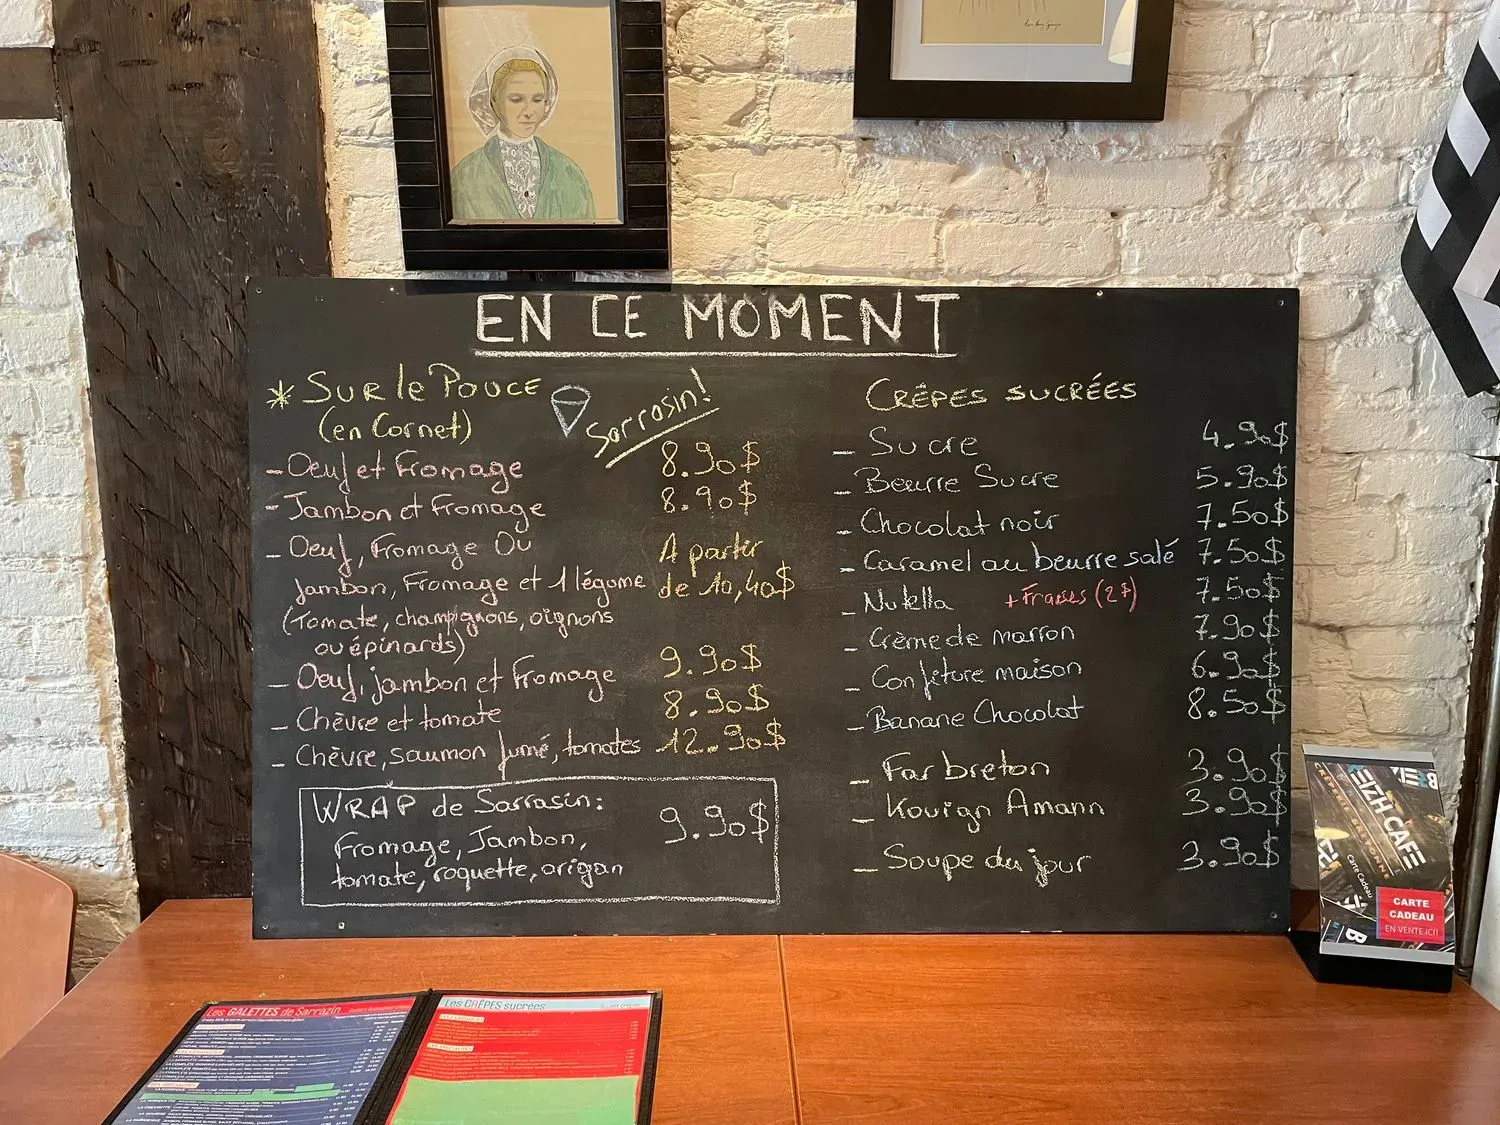 EN CE MOMENT
* SUR le POUCE
(en Cornet)
Sarrasin!
- Oeuf et Fromage 8.90$
- Jambon et Fromage 8.90$
- Oeuf, Fromage Ou A partir
Jambon, Fromage et 1 légume de 10,40$
(Tomate, champignons, oignons
ou épinards)
- Oeuf, jambon et fromage 9.90$
- Chèvre et tomate 8.90$
- Chèvre, saumon fumé, tomates 12.90$
WRAP de Sarrasin:
Fromage, Jambon, 9.90$
tomate, roquette, origan
CRÊPES SUCRÉES
- Sucre 4.90$
- Beurre Sucre 5.90$
- Chocolat noir 7.50$
- Caramel au beurre salé 7.50$
- Nutella + Fraises (2$) 7.50$
- Crème de marron 7.90$
- Confiture maison 6.90$
- Banane Chocolat 8.50$
- Far breton 3.90$
- Kouign Amann 3.90$
- Soupe du jour 3.90$
BREIZH CAFE
CRÊPERIE BRETONNE
Carte Cadeau
CARTE
CADEAU
EN VENTE ICI!
Les GALETTES de Sarrazin
Les CRÊPES sucrées